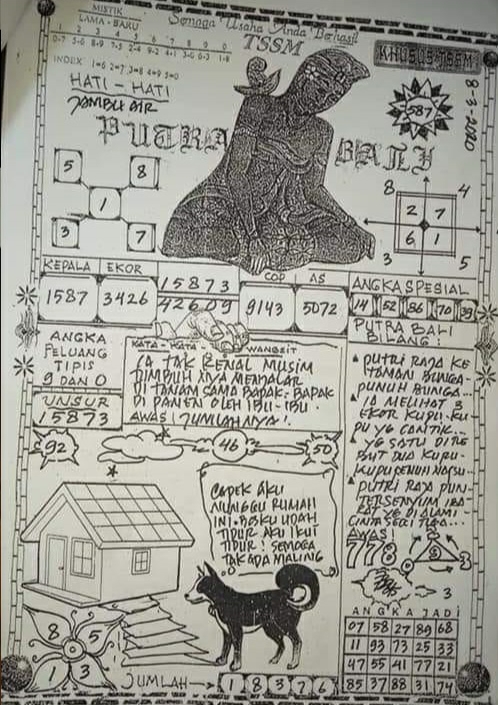 MISTIK
LAMA - BARU
Semoga Usaha Anda Berhasil
TSSM
KHUSUS TSSM
1 2 3 4 5 6 7 8 9 0
INDEX 1=6 2=7 3=8 4=9 5=0
HATI - HATI
JAMBU AIR
8-3-2020
587
PUTRA BALI
5 8
1
3 7
8 4
2 7
6 1
3 5
KEPALA EKOR
1587 3426
15873
42609
COP AS
9143 5072
ANGKA SPESIAL
14 52 86 70 39
ANGKA
PELUANG
TIPIS
9 DAN 0
UNSUR
15873
KATA - KATA - WANGSIT
IA TAK KENAL MUSIM
TUMBUH NYA MENJALAR
DI TANAM SAMA BAPAK - BAPAK
DI PANEN OLEH IBU - IBU.
AWAS! JUMLAHNYA!.
PUTRA BALI
BILANG:
PUTRI RAJA KE
TAMAN BUNGA -
PUNUH BUNGA...
IA MELIHAT 3
EKOR KUPU-KU
PU YG CANTIK...
YG SATU DI RE
BUT DUA KUPU -
KUPU PENUH NAPSU...
PUTRI RAJA PUN
TERSENYUM IBA
RAT YG DI ALAMI -
CINTA SEGI TIGA...
AWAS!
778
2
3
3
92
46
50
CAPEK AKU
NUNGGU RUMAH
INI. BOSKU UDAH
TIDUR AKU IKUT
TIDUR! SEMOGA
TAK ADA MALING
8 5
1 3
JUMLAH → 1 8 3 7 6
ANGKA JADI
07 58 27 89 68
11 93 73 25 33
47 55 41 77 21
85 37 88 31 74